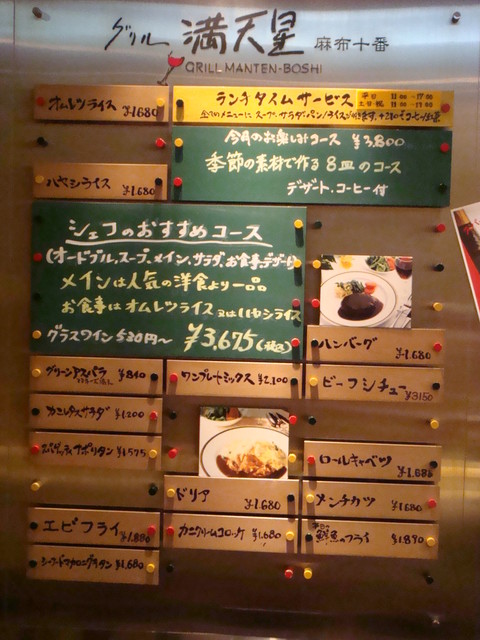 グリル 満天星 麻布十番
GRILL MANTEN-BOSHI
オムレツライス ¥1,680
ランチタイムサービス 平日 11:00~17:00
ハヤシライス ¥1,680
今月のお楽しみコース ¥3,800
季節の素材で作る8皿のコース
デザート、コーヒー付
シェフのおすすめコース
(オードブル、スープ、メイン、サラダ、お食事、デザート)
メインは人気の洋食より一品
お食事はオムレツライス又はハヤシライス
グラスワイン530円~ ¥3,675(税込)
ハンバーグ ¥1,680
グリーンアスパラ ¥840
ワンプレートミックス ¥2,100
ビーフシチュー ¥3150
カニレタスサラダ ¥1,200
スパゲッティナポリタン ¥1,575
ロールキャベツ ¥1,680
ドリア ¥1,680
メンチカツ ¥1,680
エビフライ ¥1,880
カニクリームコロッケ ¥1,680
鮮魚のフライ ¥1,890
シーフードマカロニグラタン ¥1,680